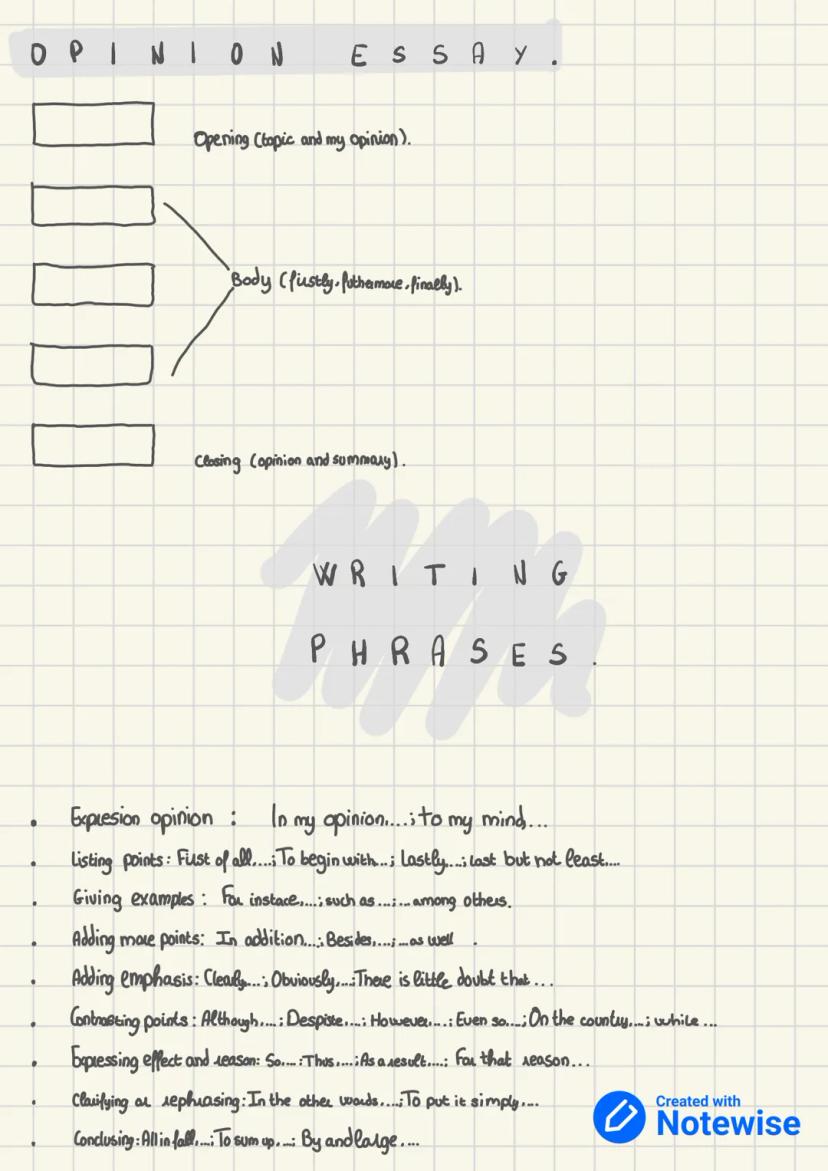 OPINION ESSAY.
Opening (topic and my opinion).
Body (firstly, futhermore, finally).
Closing (opinion and summary).
WRITING
PHRASES.
. Expresion opinion : In my opinion...; to my mind...
. Listing points: First of all,...; To begin with...; Lastly...; last but not least....
. Giving examples : For instace,...; such as ...; ... among others.
. Adding more points: In addition...; Besides,...; ... as well .
. Adding emphasis: Clearly...; Obviously,...; There is little doubt that ...
. Contrasting points : Although,...; Despite...; However,...; Even so...; On the country,...; while ...
. Expressing effect and reason: So...; Thus,...; As a result...; For that reason...
. Clarifying or rephrasing: In the other words,...; To put it simply,...
. Conclusing: All in fall,...; To sum up,...; By and large,...
Created with
Notewise